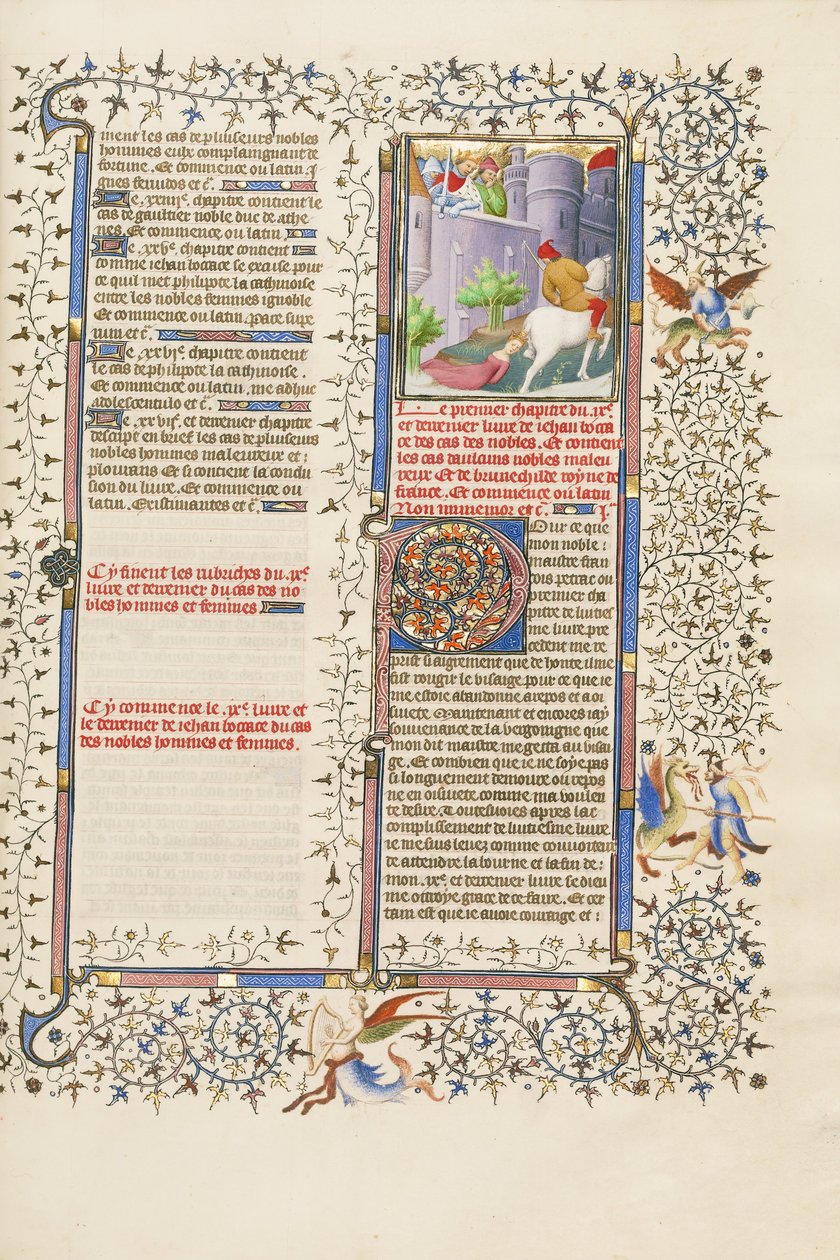 ment les cas de pluiseurs nobles
hommes eulx complaingnant de
fortune. Et commence ou latin. I
gnes fenudos et c̃.
Le .xxiiiie. chapitre contient le
cas de gaultier noble duc de athe
nes. Et commence ou latin
Le .xxve. chapitre contient
comme iehan bocace se excuse pour
ce quil met philipote la cathinoise
entre les nobles femmes ignoble
Et commence ou latin. pace supe
rum et c̃.
Le .xxvie. chapitre contient
le cas de philipote la cathinoise.
Et commence ou latin. me adhuc
adolescentulo et c̃.
Le .xxviie. et derrenier chapitre
descript en brief les cas de pluiseurs
nobles hommes maleureux et :
plourans Et si contient la conclu
sion du liure. Et commence ou
latin. Existimantes et c̃.
Cy finent les rubriches du .ixe.
liure et derrenier du cas des no
bles hommes et femmes
Cy commence le .ixe. liure et
le derrenier de iehan bocace du cas
des nobles hommes et femmes.
Le premier chapitre du .ixe.
et derrenier liure de iehan boca
ce des cas des nobles. Et contient
les cas daulcuns nobles maleu
reux Et de brunechilde royne de
france. Et commence ou latin
Non inmemor et c̃. I.
Pour ce que
mon noble :
maistre fran
cois petrac ou
premier cha
pitre de luities
me liure pre
cedent me re
prist si aigrement que de honte il me
fist rougir le visaige pour ce que ie
me estoie abandonne a repos et a oi
siuete Maintenant et encores iay
souuenance de la vergoingne que
mon dit maistre me getta au visai
ge. Et combien que ie ne soye pas
si longuement demoure ou repos
ne en oisiuete comme ma voulen
te desire. Toutesuoies apres lac
complissement de luitiesme liure
ie me suis leuez comme conuoiteux
de attendre la iourne et la fin de :
mon .ixe. et derrenier liure se dieu
me ottroye grace de ce faire. Et cer
tain est que ie auoie courage et :